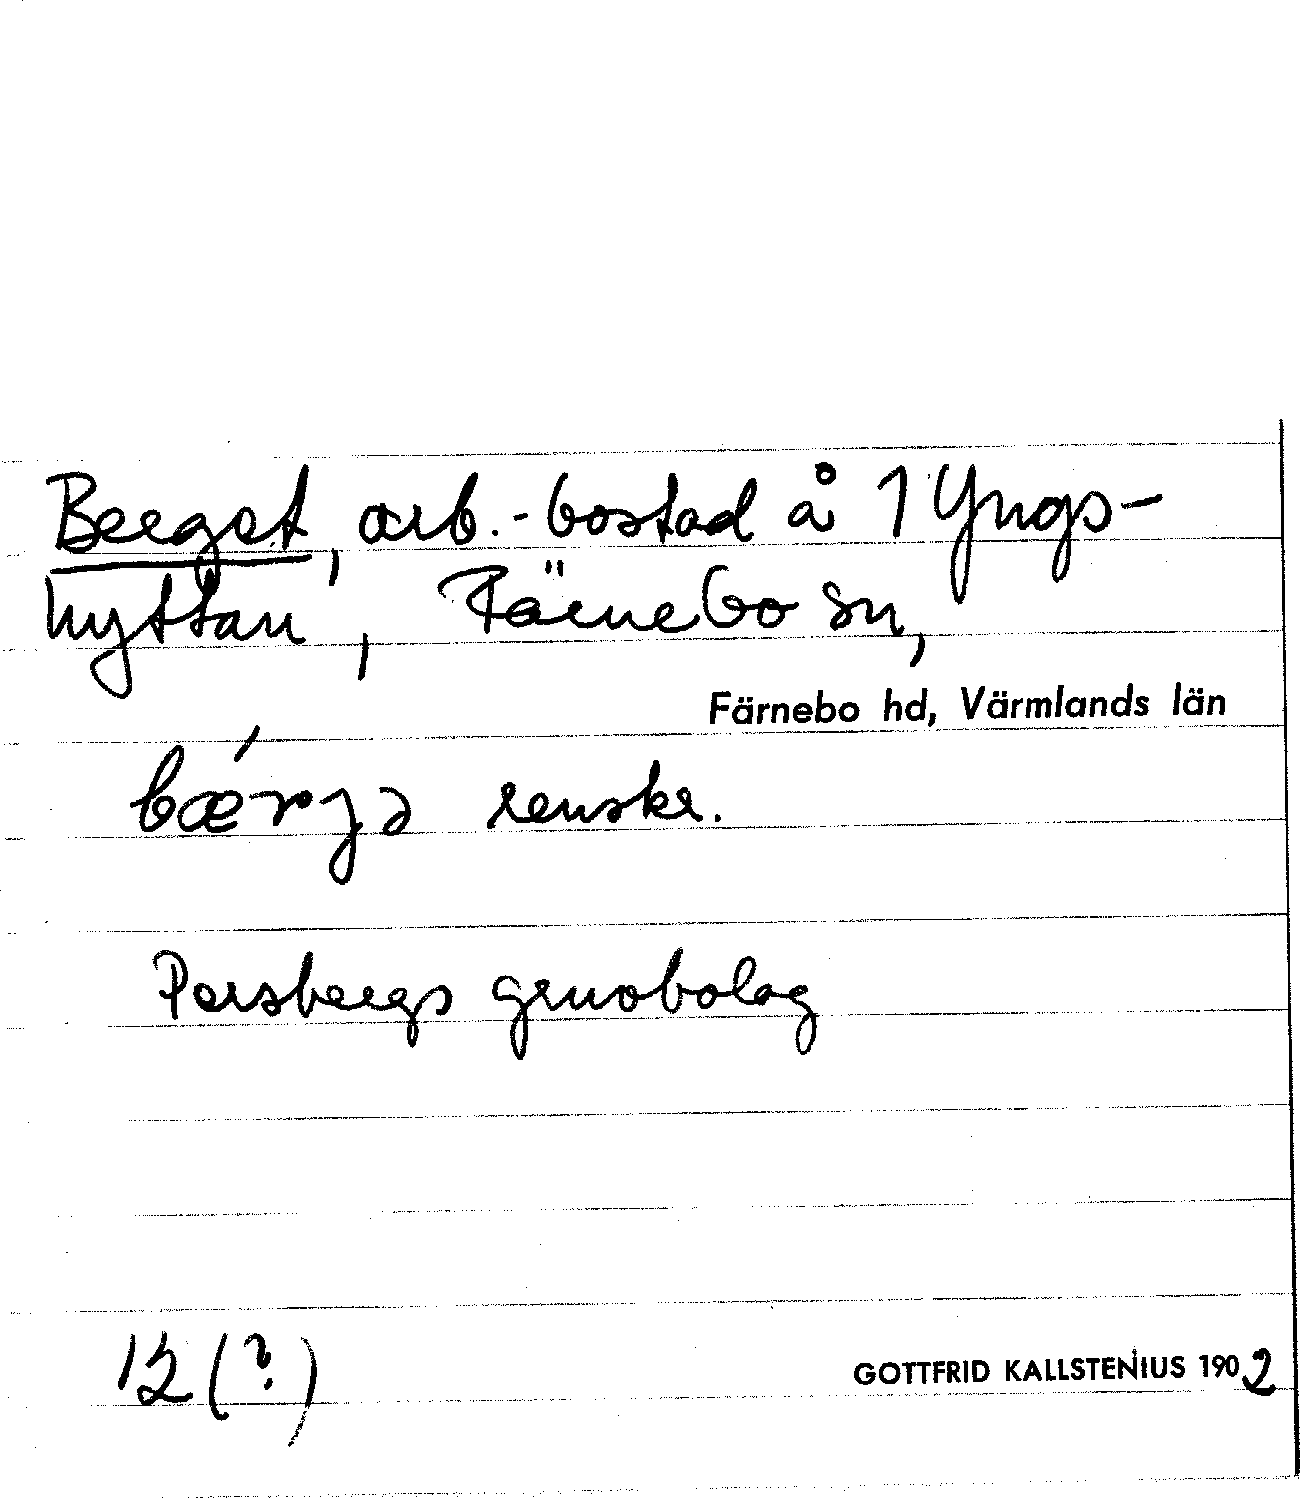 Berget, arb.-bostad å 1 Yngs-
hyttan, Färnebo sn,
Färnebo hd, Värmlands län
bǽrjə renskr.
Persbergs gruvbolag
12 (?)
GOTTFRID KALLSTENIUS 1902